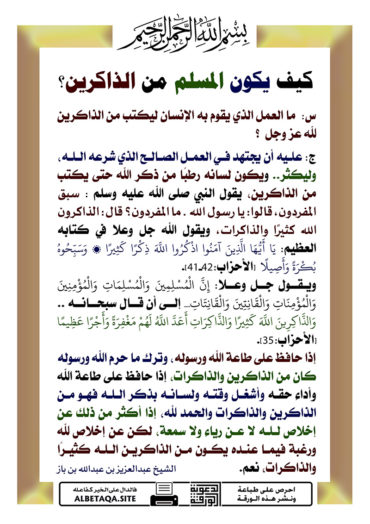 بسم الله الرحمن الرحيم
كيف يكون المسلم من الذاكرين؟
س: ما العمل الذي يقوم به الإنسان ليكتب من الذاكرين
لله عز وجل ؟
ج: عليه أن يجتهد في العمل الصالح الذي شرعه الله،
وليكثر.. ويكون لسانه رطبا من ذكر الله حتى يكتب
من الذاكرين، يقول النبي صلى الله عليه وسلم : سبق
المفردون، قالوا: يا رسول الله . ما المفردون؟ قال: الذاكرون
الله كثيرًا والذاكرات، ويقول الله جل وعلا في كتابه
العظيم: يَا أَيُّهَا الَّذِينَ آمَنُوا اذْكُرُوا اللَّهَ ذِكْرًا كَثِيرًا ۞ وَسَبِّحُوهُ
بُكْرَةً وَأَصِيلًا [الأحزاب:42،41]،
ويقول جل وعلا: إِنَّ الْمُسْلِمِينَ وَالْمُسْلِمَاتِ وَالْمُؤْمِنِينَ
وَالْمُؤْمِنَاتِ وَالْقَانِتِينَ وَالْقَانِتَاتِ.. إلى أن قال سبحانه ..
وَالذَّاكِرِينَ اللَّهَ كَثِيرًا وَالذَّاكِرَاتِ أَعَدَّ اللَّهُ لَهُمْ مَغْفِرَةً وَأَجْرًا عَظِيمًا
[الأحزاب:35]،
إذا حافظ على طاعة الله ورسوله، وترك ما حرم الله ورسوله
كان من الذاكرين والذاكرات، إذا حافظ على طاعة الله
وأداء حقه وأشغل وقته ولسانه بذكر الله فهو من
الذاكرين والذاكرات والحمد لله، إذا أكثر من ذلك عن
إخلاص لله لا عن رياء ولا سمعة، لكن عن إخلاص لله
ورغبة فيما عنده يكون من الذاكرين الله كثيرًا
والذاكرات، نعم. الشيخ عبدالعزيز بن عبدالله بن باز
فالدال على الخير كفاعله
ALBETAQA.SITE
الدعوية
الورقة
احرص على طباعة
ونشر هذه الورقة